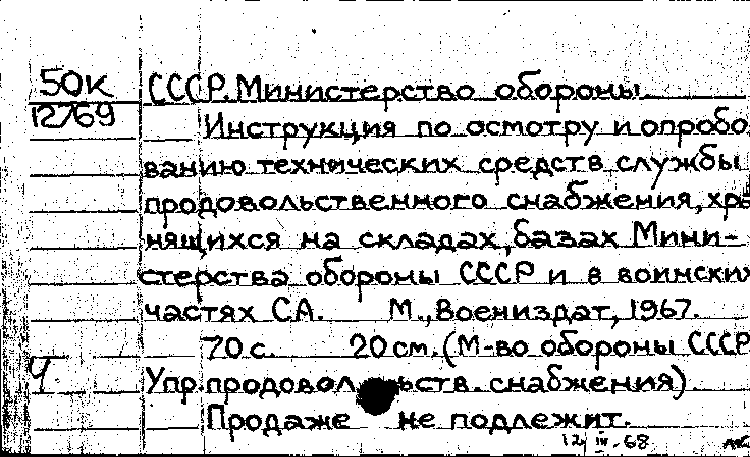 50К СССР. Министерство обороны.
12769 Инструкция по осмотру и опробо
ванию технических средств службы
продовольственного снабжения, хра
нящихся на складах, базах Мини-
стерства обороны СССР и в воинских
частях СА. М., Воениздат, 1967.
70 с. 20 см. (М-во обороны СССР
Ч. Упр. продовольств. снабжения)
Продаже не подлежит.
12 III-68